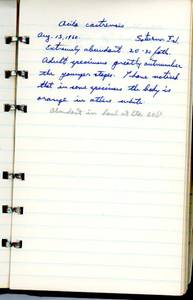 Acila castrensis
Aug. 13, 1960. Isl.
Extremely abundant 20-30 fath.
Adult specimens greatly outnumber
the younger stages. I have noticed
that in some specimens the body is
orange in others white.
Abundant in haul at Sta.